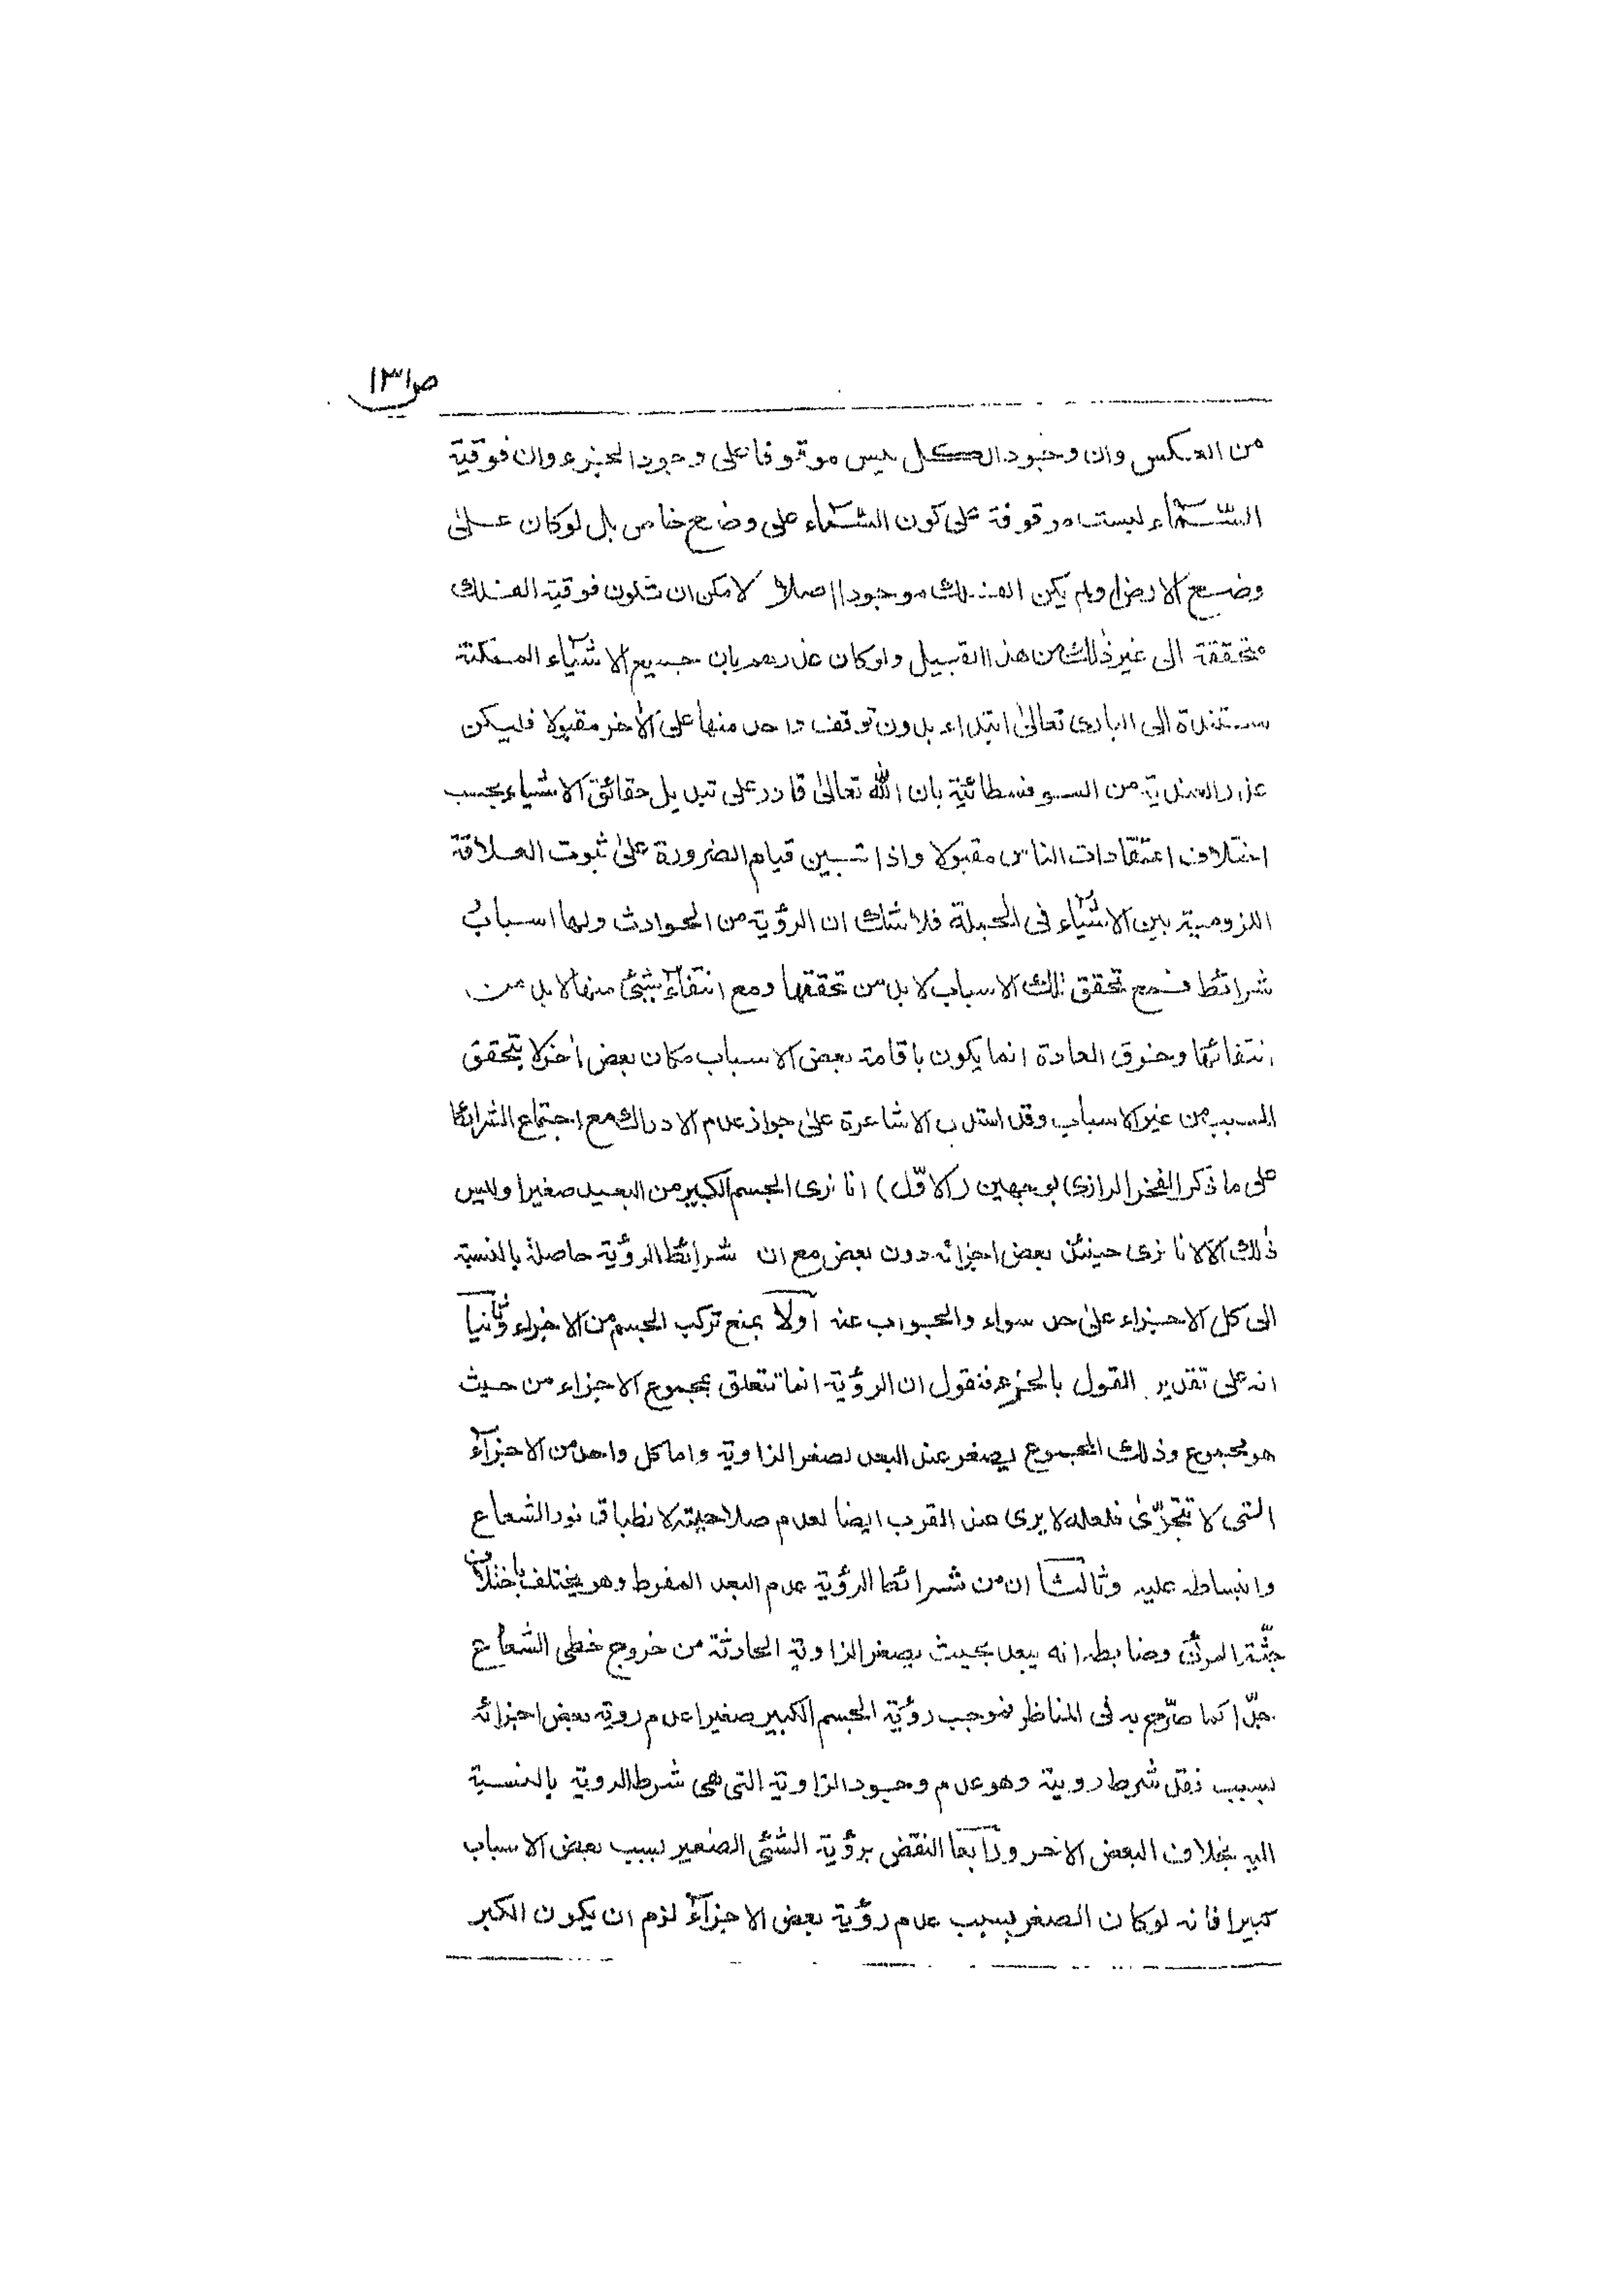 ص١٣١
من العكس وان وجود الكل ليس موقوفا على وجود الجزء وان فوقية
السّماء ليست موقوفة على كون السّماء على وضع خاص بل لو كان على
وضع الارض او لم يكن الفلك موجودا اصلا لا مكن ان تكون فوقية الفلك
متحققة الى غير ذٰلك من هذا القبيل ولو كان عذرهم بان جميع الاشياء الممكنة
مستندة الى البارى تعالىٰ ابتداء بدون توقف واحد منها على الأخر مقبولا فليكن
عذر العندية من السوفسطائية بان الله تعالىٰ قادر على تبديل حقائق الاشياء بحسب
اختلاف اعتقادات الناس مقبولا واذا تبين قيام الضرورة علىٰ ثبوت العلاقة
اللزومية بين الاشياء فى الجملة فلا شك ان الرؤية من الحوادث ولها اسبابٌ
شرائط فمع تحقق تلك الاسباب لا بد من تحققها ومع انتفاء شئ منها لا بد من
انتفائها وخرق العادة انما يكون باقامة بعض الاسباب مكان بعض أخر لا يتحقق
المسبب من غير الاسباب وقد استدل الاشاعرة علىٰ جواز عدم الادراك مع اجتماع الشرائط
على ما ذكر الفخر الرازى بوجهين (الاوّل) انا نرى الجسم الكبير من البعيد صغيرا وليس
ذٰلك الا لانا نرى حينئذ بعض اجزائه دون بعض مع ان شرائط الرؤية حاصلة بالنسبة
الى كل الاجزاء علىٰ حد سواء والجواب عنه اولا بمنع تركب الجسم من الاجزاء وثانيا
انه على تقدير القول بالجزء فنقول ان الرؤية انما تتعلق بمجموع الاجزاء من حيث
هو مجموع وذلك المجموع يصغر عند البعد لصغر الزاوية واما كل واحد من الاجزآء
التى لا تتجزّىٰ فلعله لا يرى عند القرب ايضا لعدم صلاحيته لانطباق نور الشعاع
وانبساطه عليه وثالثا ان من شرائط الرؤية عدم البعد المفرط وهو يختلف باختلاف
جثّة المرئى وضابطه انه يبعد بحيث يصغر الزاوية الحادثة من خروج خطى الشعاع
جدّا كما صرّح به فى المناظر فموجب رؤية الجسم الكبير صغيرا عدم روية بعض اجزائه
بسبب فقد شرط روية وهو عدم وجود الزاوية التى هى شرط الروية بالنسبة
اليه بخلاف البعض الاخر ورابعا النقض برؤية الشئ الصغير بسبب بعض الاسباب
كبيرا فانه لو كان الصغر بسبب عدم رؤية بعض الاجزآء لزم ان يكون الكبر